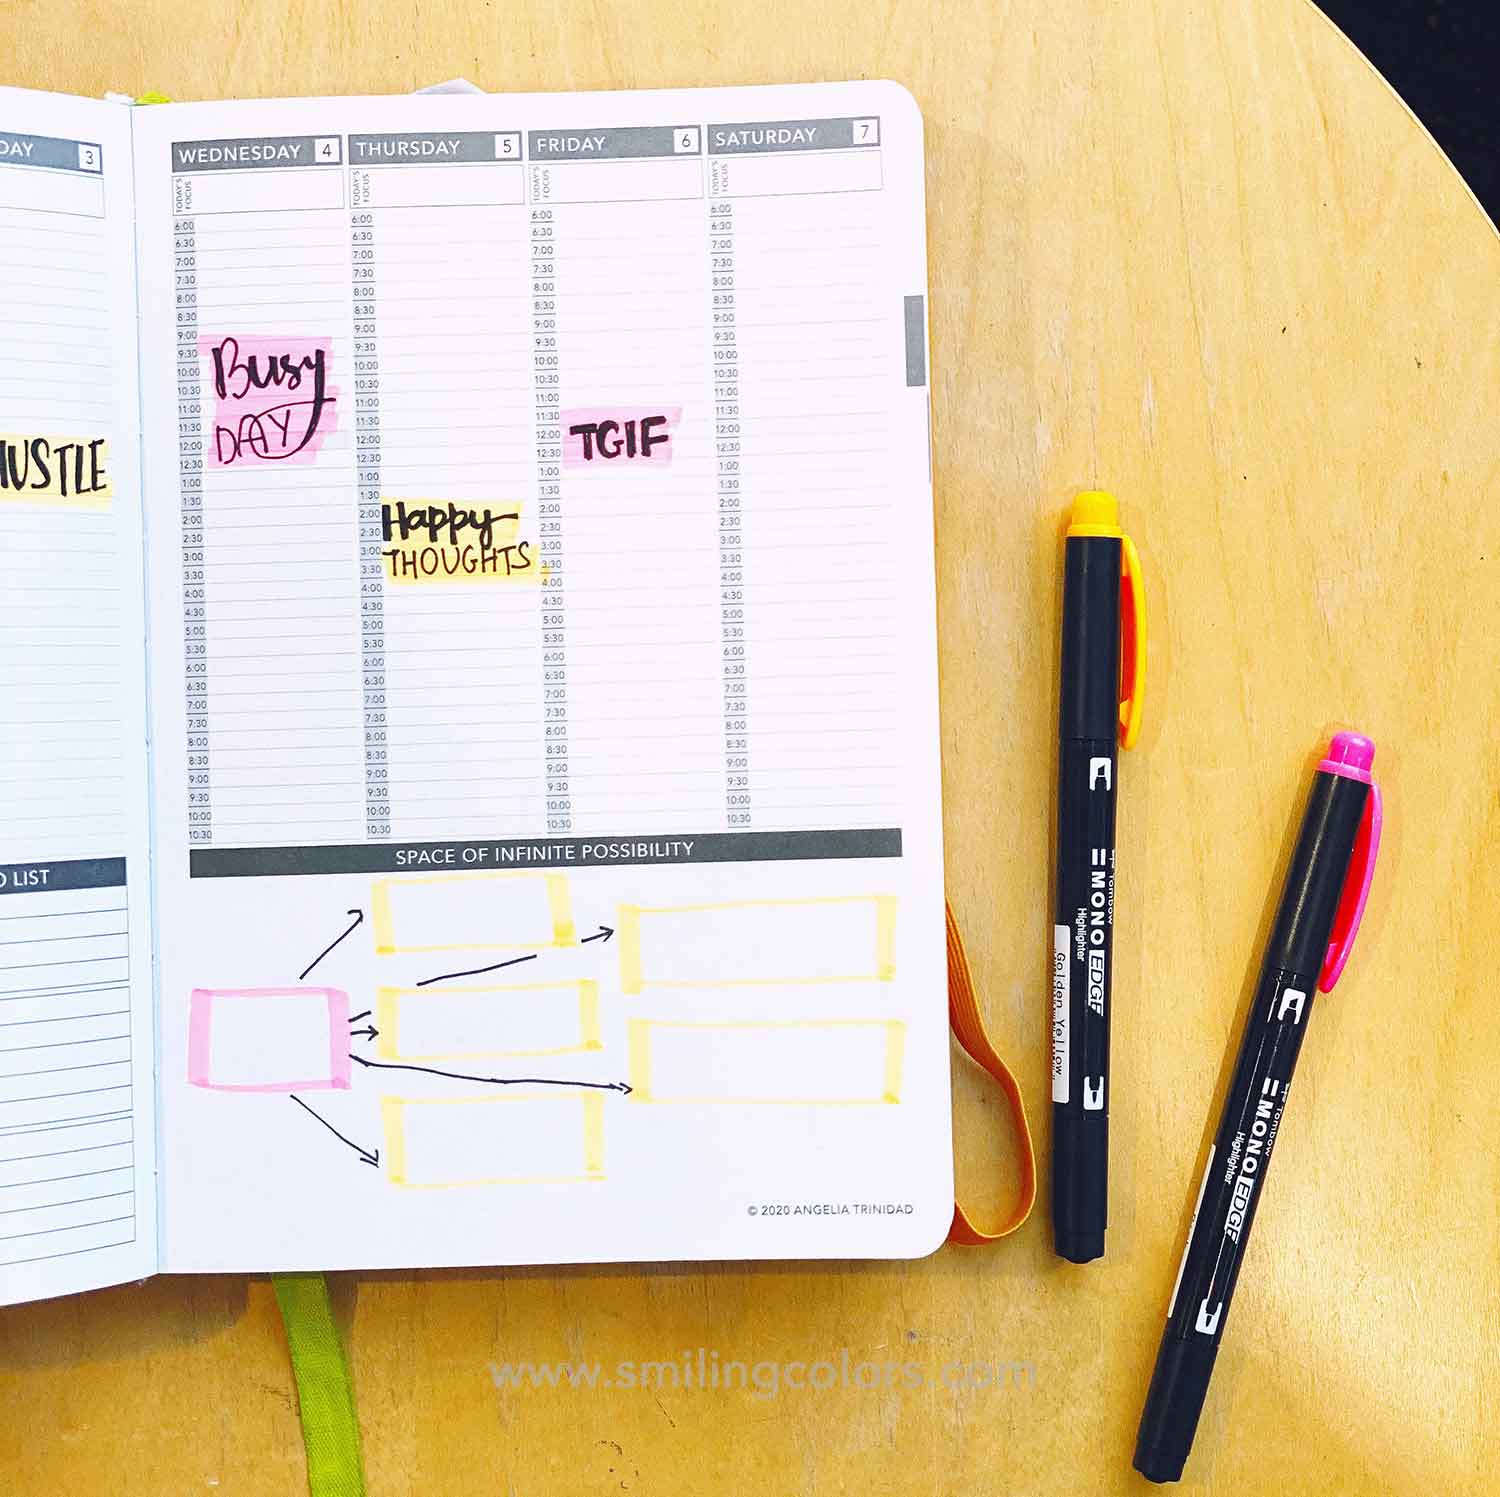 DAY 3
USTLE
O LIST
WEDNESDAY 4
TODAY'S
FOCUS
6:00
6:30
7:00
7:30
8:00
8:30
9:00
9:30
10:00
10:30
11:00
11:30
12:00
12:30
1:00
1:30
2:00
2:30
3:00
3:30
4:00
4:30
5:00
5:30
6:00
6:30
7:00
7:30
8:00
8:30
9:00
9:30
10:00
10:30
Busy
DAY
THURSDAY 5
TODAY'S
FOCUS
6:00
6:30
7:00
7:30
8:00
8:30
9:00
9:30
10:00
10:30
11:00
11:30
12:00
12:30
1:00
1:30
2:00
2:30
3:00
3:30
4:00
4:30
5:00
5:30
6:00
6:30
7:00
7:30
8:00
8:30
9:00
9:30
10:00
10:30
Happy
THOUGHTS
FRIDAY 6
TODAY'S
FOCUS
6:00
6:30
7:00
7:30
8:00
8:30
9:00
9:30
10:00
10:30
11:00
11:30
12:00
12:30
1:00
1:30
2:00
2:30
3:00
3:30
4:00
4:30
5:00
5:30
6:00
6:30
7:00
7:30
8:00
8:30
9:00
9:30
10:00
10:30
TGIF
SATURDAY 7
TODAY'S
FOCUS
6:00
6:30
7:00
7:30
8:00
8:30
9:00
9:30
10:00
10:30
11:00
11:30
12:00
12:30
1:00
1:30
2:00
2:30
3:00
3:30
4:00
4:30
5:00
5:30
6:00
6:30
7:00
7:30
8:00
8:30
9:00
9:30
10:00
10:30
SPACE OF INFINITE POSSIBILITY
© 2020 ANGELIA TRINIDAD
Tombow
MONO EDGE
Highlighter
Golden Yellow
Tombow
MONO EDGE
Highlighter
www.smilingcolors.com